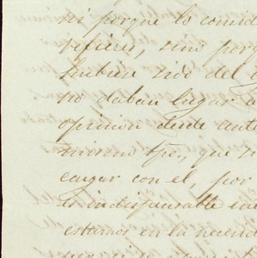 ni porque lo consid
refiere, sino porq
hubiese sido del a
no daban lugar a
opinion desde ante
mismo tpo, que s
cargar con el, por
es indispensable en
estamos en la necesid